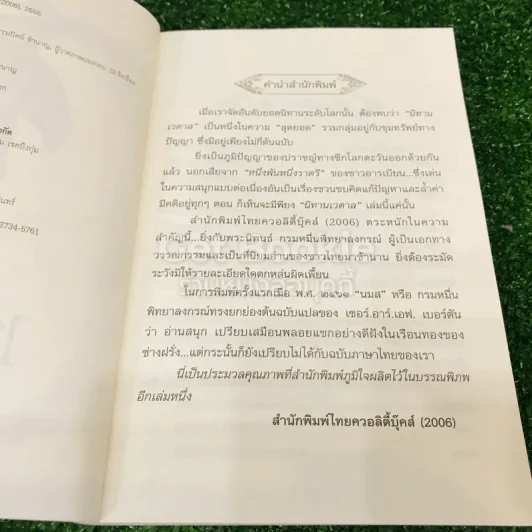 2006), 2555.
คำนำสำนักพิมพ์
เมื่อเราจัดอันดับยอดนิทานระดับโลกนั้น ต้องพบว่า "นิทาน
เวตาล" เป็นหนึ่งในความ "สุดยอด" รวมกลุ่มอยู่กับขุมทรัพย์ทาง
ปัญญา ซึ่งมีอยู่เพียงไม่กี่ต้นฉบับ
ยิ่งเป็นภูมิปัญญาของปราชญ์ทางซีกโลกตะวันออกด้วยกัน
แล้ว นอกเสียจาก "หนึ่งพันหนึ่งราตรี" ของชาวอาระเบียน...ซึ่งเด่น
ในความสนุกแบบต่อเนื่องอันเป็นเรื่องชวนขบคิดแก้ปัญหาและล้ำค่า
มีคติอยู่ทุกๆ ตอน ก็เห็นจะมีเพียง "นิทานเวตาล" เล่มนี้แค่นั้น
สำนักพิมพ์ไทยควอลิตี้บุ๊คส์ (2006) ตระหนักในความ
สำคัญนี้...ยิ่งกับพระนิพนธ์ กรมหมื่นพิทยาลงกรณ์ ผู้เป็นเอกทาง
วรรณกรรมและเป็นที่นิยมอ่านของชาวไทยมาช้านาน ยิ่งต้องระมัด
ระวังมิให้รายละเอียดใดตกหล่นผิดเพี้ยน
ในการพิมพ์ครั้งแรกเมื่อ พ.ศ. ๒๔๖๑ "นมส" หรือ กรมหมื่น
พิทยาลงกรณ์ทรงยกย่องต้นฉบับแปลของ เซอร์.อาร์.เอฟ. เบอร์ตัน
ว่า อ่านสนุก เปรียบเสมือนพลอยแขกอย่างดีฝังในเรือนทองของ
ช่างฝรั่ง...แต่กระนั้นก็ยังเปรียบไม่ได้กับฉบับภาษาไทยของเรา
นี่เป็นประมวลคุณภาพที่สำนักพิมพ์ภูมิใจผลิตไว้ในบรรณพิภพ
อีกเล่มหนึ่ง
สำนักพิมพ์ไทยควอลิตี้บุ๊คส์ (2006)
2734-5761